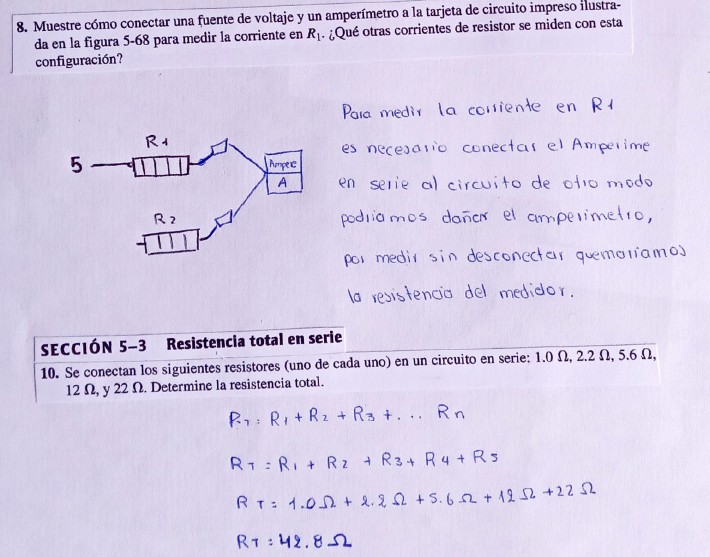 8. Muestre cómo conectar una fuente de voltaje y un amperímetro a la tarjeta de circuito impreso ilustra-
da en la figura 5-68 para medir la corriente en R1. ¿Qué otras corrientes de resistor se miden con esta
configuración?
Para medir la corriente en R1
es necesario conectar el Amperime
en serie al circuito de otro modo
podriamos dañar el amperimetro,
por medir sin desconectar quemariamos
la resistencia del medidor.
R1
5
Ampere
A
R2
SECCIÓN 5–3 Resistencia total en serie
10. Se conectan los siguientes resistores (uno de cada uno) en un circuito en serie: 1.0 Ω, 2.2 Ω, 5.6 Ω,
12 Ω, y 22 Ω. Determine la resistencia total.
RT: R1 + R2 + R3 + . . . Rn
RT = R1 + R2 + R3 + R4 + R5
RT = 1.0 Ω + 2.2 Ω + 5.6 Ω + 12 Ω + 22 Ω
RT = 42.8 Ω